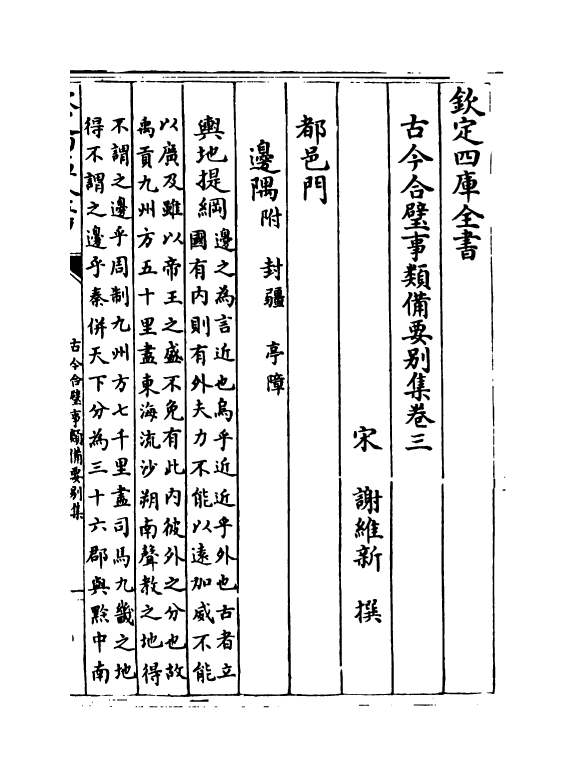 欽定四庫全書
古今合璧事類備要別集卷三
宋 謝維新 撰
都邑門
邊隅附 封疆 亭障
輿地提綱
邊之為言近也烏乎近近乎外也古者立
國有内則有外夫力不能以遠加威不能
以廣及雖以帝王之盛不免有此内彼外之分也故
禹貢九州方五十里盡東海流沙朔南聲教之地得
不謂之邊乎周制九州方七千里盡司馬九畿之地
得不謂之邊乎秦併天下分為三十六郡與黔中南
古今合璧事類備要別集
一